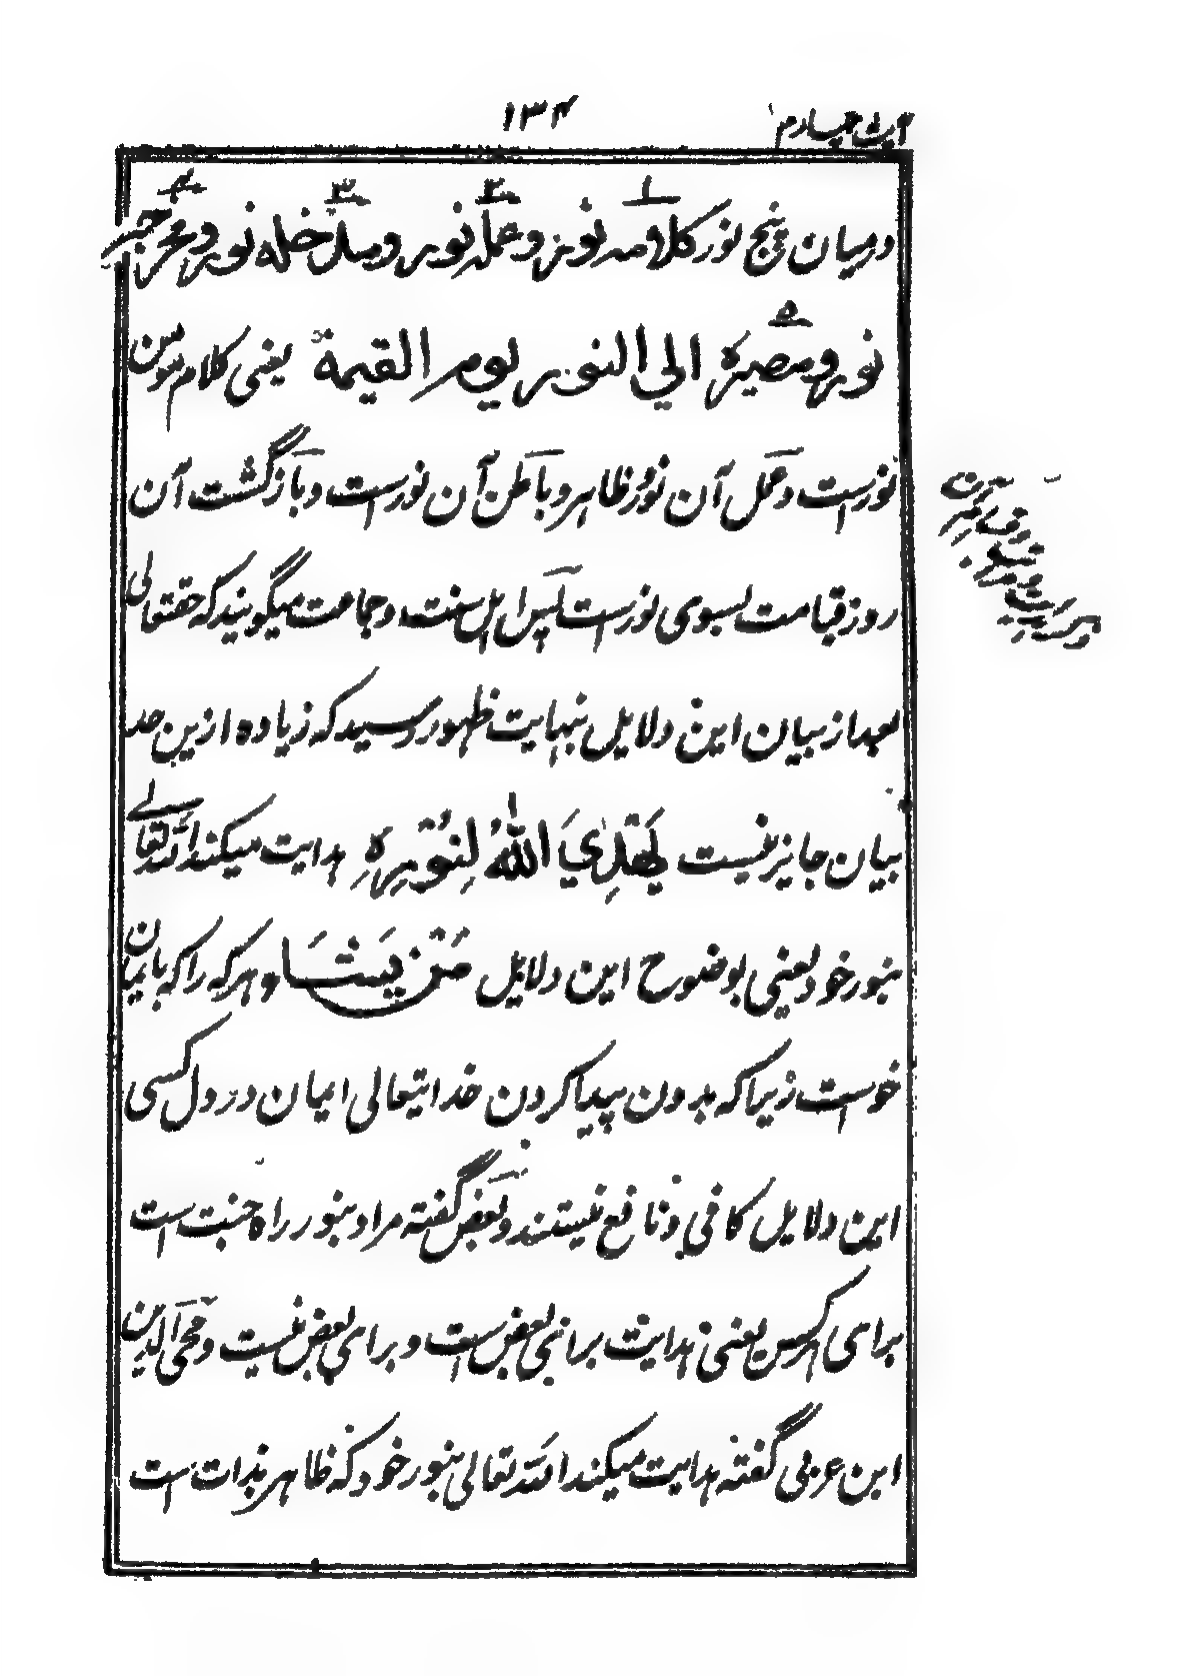 ۱۳۴
آیت چهارم
درمیان پنج نور کلامه نور وعمله نور ومدخله نور ومخرجه
نور ومصیره الی النور یوم القیمة یعنی کلام مومن
نورست وعمل آن نور وظاهر وباطن آن نورست وبازگشت آن
روز قیامت بسوی نورست پس اهل سنت وجماعت میگویند که حقتعالی
بعد از بیان این دلایل بنهایت ظهور رسید که زیاده ازین حد
بیان جایز نیست یَهْدِی اللهُ لِنُوْرِهٖ هدایت میکند الله تعالے
بنور خود یعنی بوضوح این دلایل مَنْ یَشَاء هر که را که بایمان
خوست زیرا که بدون پیدا کردن خدایتعالی ایمان در دل کسی
این دلایل کافی ونافع نیستند وبعض گفته مراد بنور راه جنت است
برای هرکس یعنی هدایت برای بعض ست وبرای بعض نیست ومحی الدین
ابن عربی گفته هدایت میکند الله تعالی بنور خود که ظاهر بذات ست